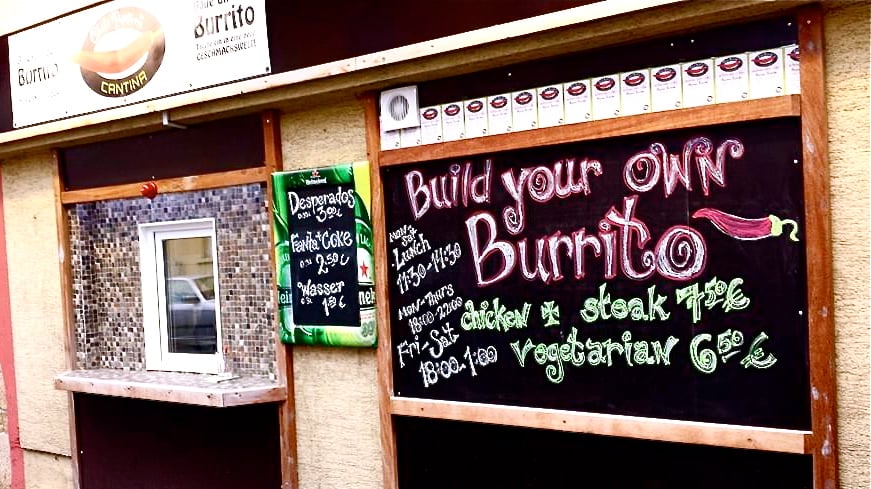 Burrito
CANTINA
Burrito
GESCHMACKSWELT!
Heineken
Desperados
3,00€
Fanta + Coke
2,50€
Wasser
1,50€
Build your OWN
Burrito
Mon-Sat
Lunch
11:30-14:30
Mon-Thurs
18:00-22:00
Fri-Sat
18:00-1:00
chicken + steak 7,50€
vegetarian 6,50€